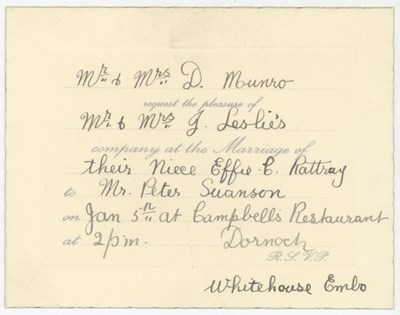 Mr & Mrs D. Munro
request the pleasure of
Mr & Mrs J. Leslie's
company at the Marriage of
their Niece Effie C. Rattray
to Mr. Peter Suanson
on Jan 5th at Campbells Restaurant
at 2 p.m. Dornoch
R.S.V.P.
Whitehouse Embo